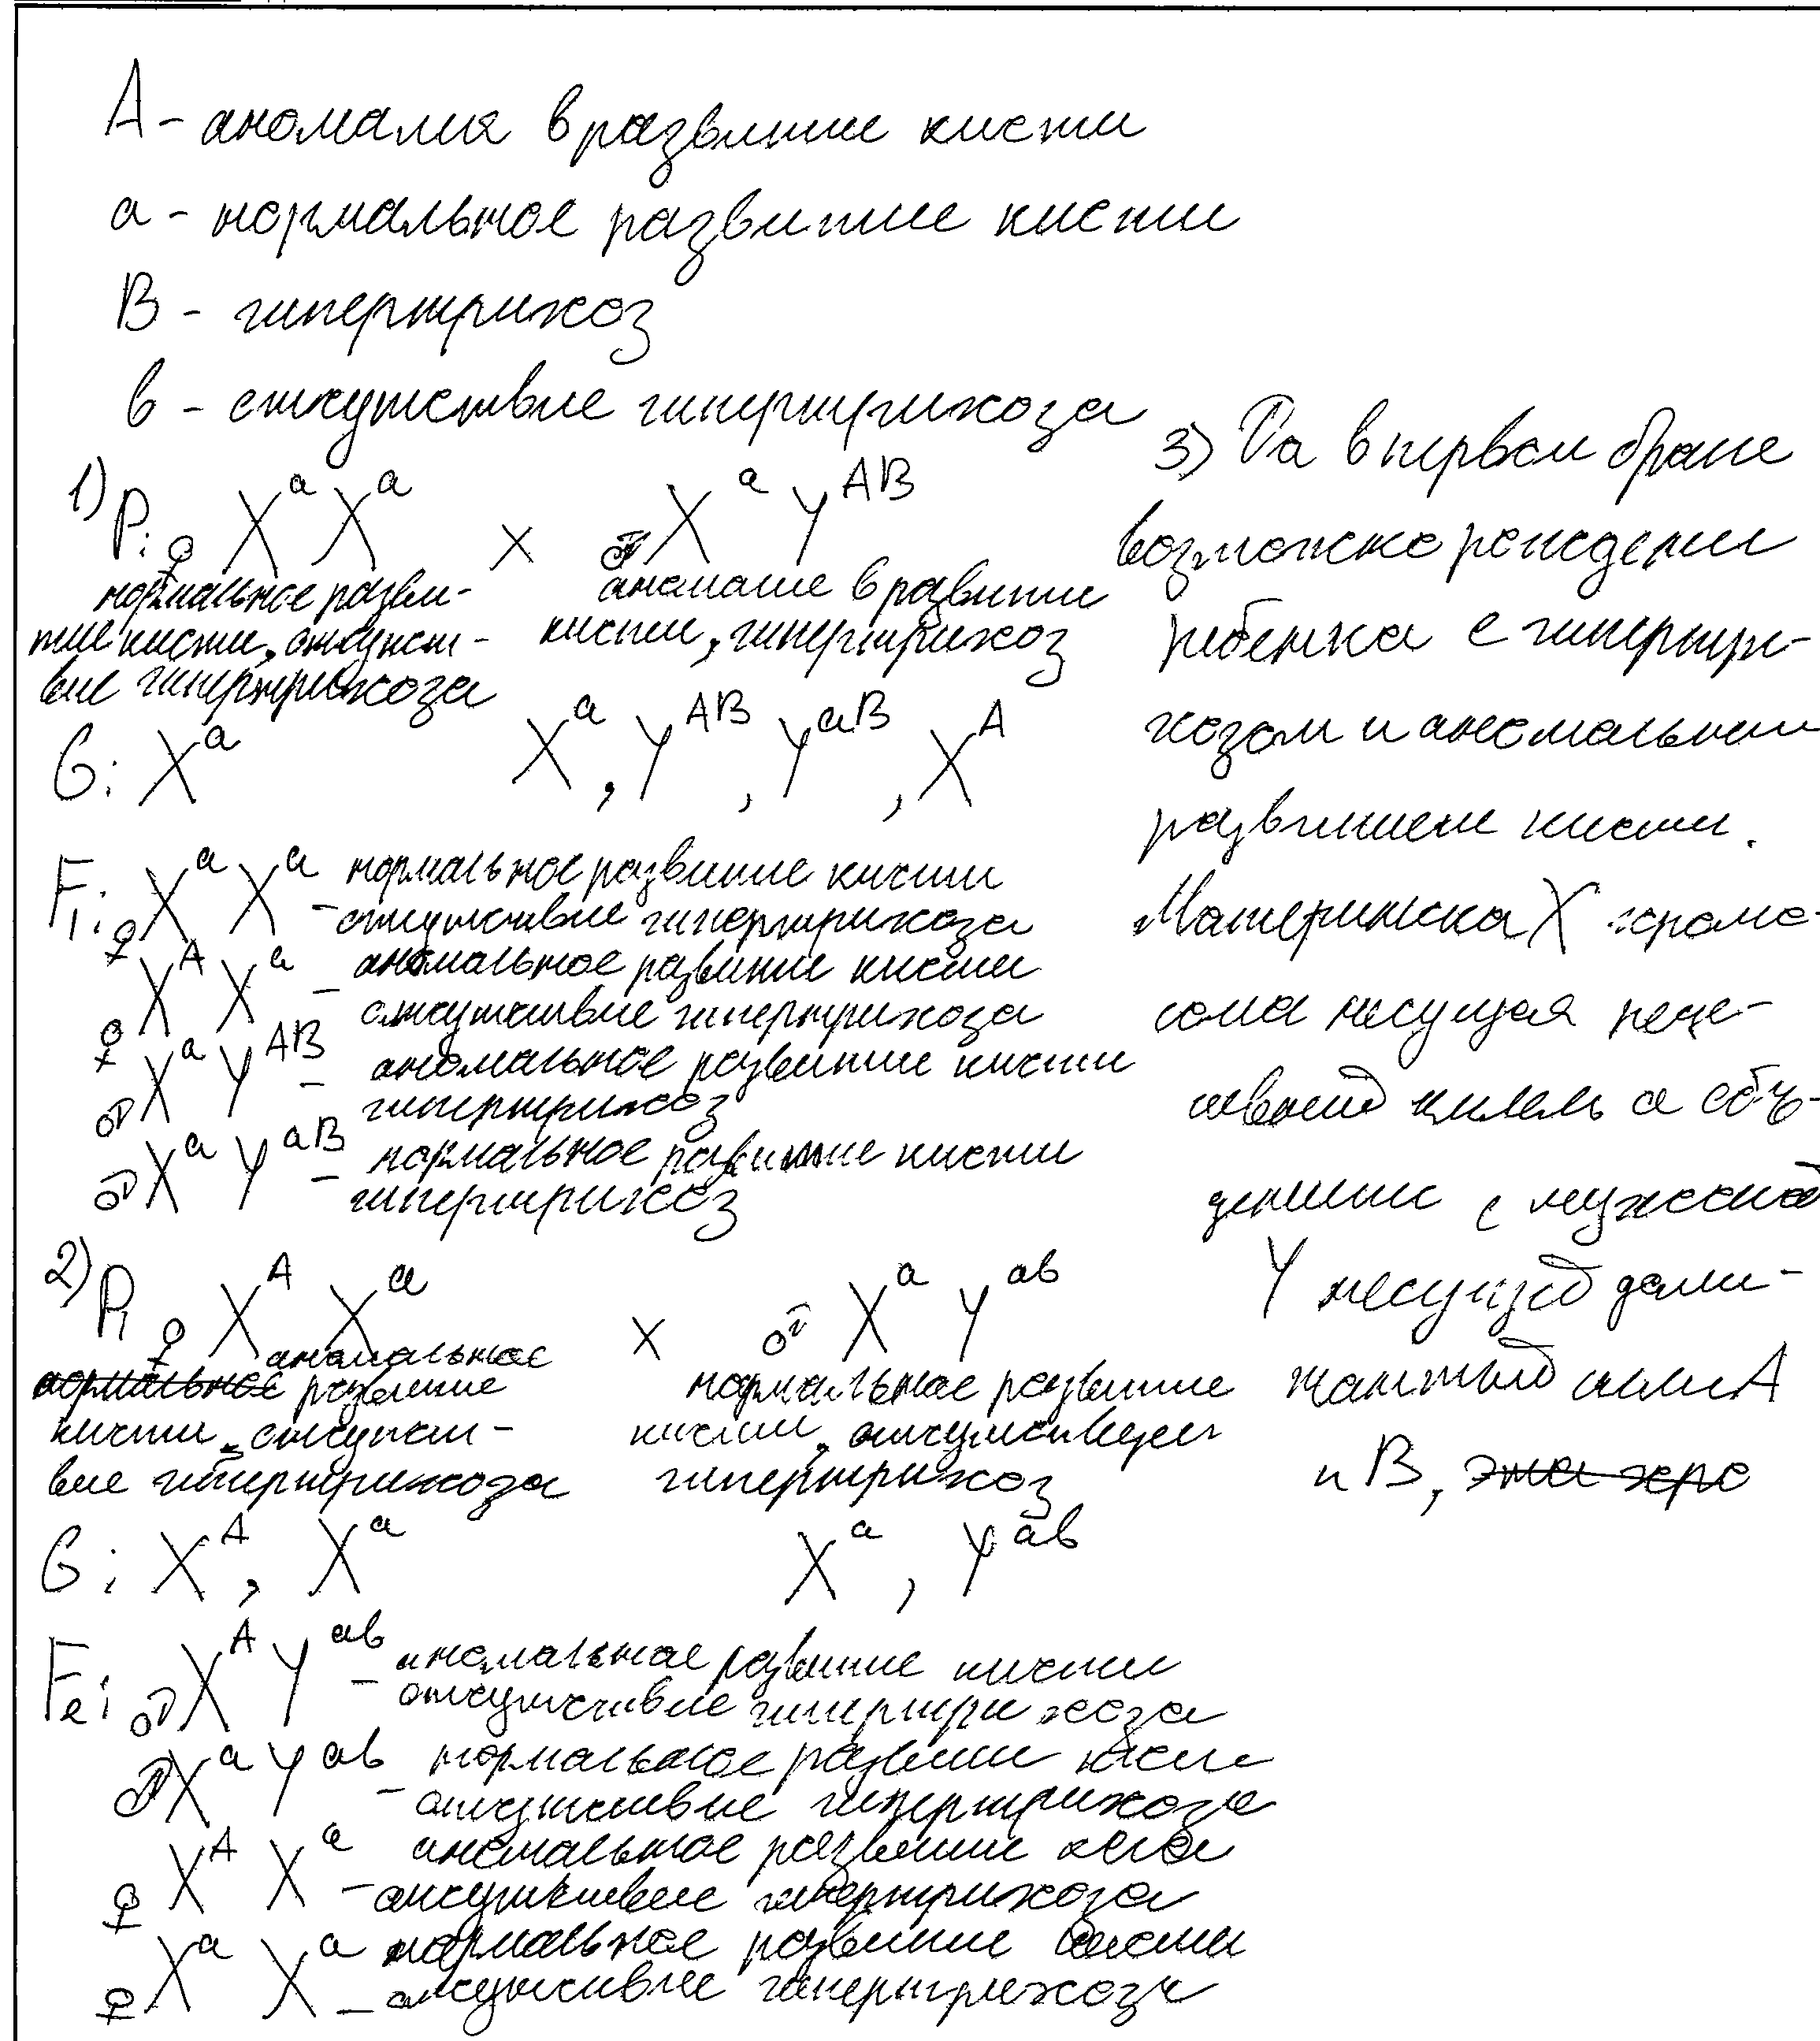 А - аномалия в развитие кисти
а - нормальное развитие кисти
В - гипертрихоз
в - отсутствие гипертрихоза
1) P: ♀ XᵃXᵃ x ♂ XᵃYᴬᴮ
нормальное разви- аномалие в развитие
тие кисти, отсутст- кисти, гипертрихоз
вие гипертрихоза
G: Xᵃ Xᵃ, Yᴬᴮ, Yᵃᴮ, Xᴬ
F₁: ♀ XᵃXᵃ - нормальное развитие кисти
отсутствие гипертрихоза
♀ XᴬXᵃ - аномальное развитие кисти
отсутствие гипертрихоза
♂ XᵃYᴬᴮ - аномальное развитие кисти
гипертрихоз
♂ XᵃYᵃᴮ - нормальное развитие кисти
гипертрихоз
2) P₁ ♀ XᴬXᵃ x ♂ XᵃYᵃᵇ
аномальное
нормальное развитие нормальное развитие
кисти, отсутст- кисти, отсутствует
вие гипертрихоза гипертрихоз
G: Xᴬ, Xᵃ Xᵃ, Yᵃᵇ
F₂: ♂ XᴬYᵃᵇ - аномальное развитие кисти
отсутствие гипертрихоза
♂ XᵃYᵃᵇ - нормальное развитие кисти
отсутствие гипертрихоза
♀ XᴬXᵃ - аномальное развитие
отсутствие гипертрихоза
♀ XᵃXᵃ - нормальное развитие кисти
отсутствие гипертрихоза
3) Да в первом браке
возможно рождении
ребенка с гипертри-
хозом и аномальным
развитием кисти.
Материнска X хромо-
сома несущая реце-
сивный а объ-
денить с мужской
Y несущей доми-
нантный А
и В, эта хро